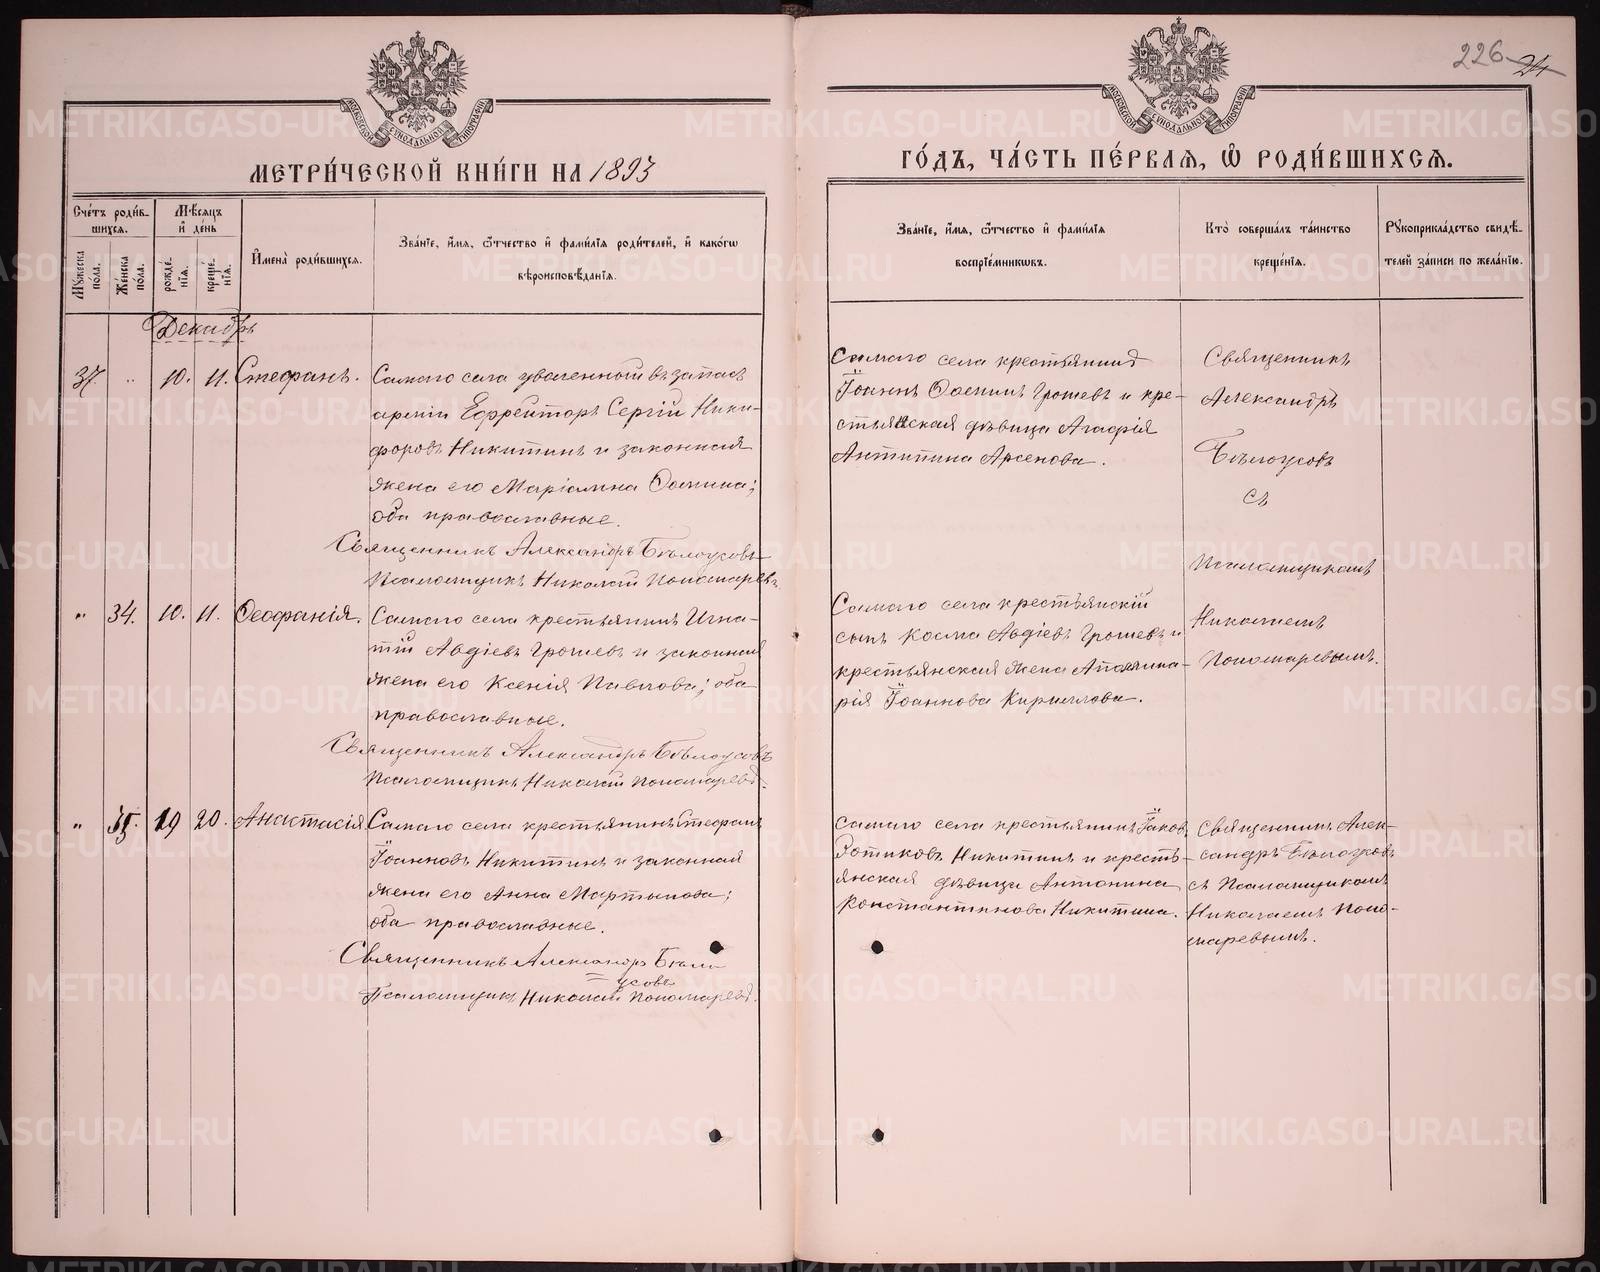 226 24
МОСКОВСКОЙ СѴНОДАЛЬНОЙ ТИПОГРАФІИ
МОСКОВСКОЙ СѴНОДАЛЬНОЙ ТИПОГРАФІИ
МЕТРИ́ЧЕСКОЙ КНИ́ГИ НА 1893
ГО́ДЪ, ЧА́СТЬ ПЕ́РВАѦ, Ѡ҆ РОДИ́ВШИХСѦ.
Сче́тъ роди́в-
шихсѧ.
Мꙋ́жеска по́ла.
Же́нска по́ла.
Мѣ́сѧцъ
и҆ де́нь
рожде́-
нїѧ.
креще́-
нїѧ.
И҆мена̀ роди́вшихсѧ.
Зва́нїе, и҆́мѧ, ѻ҆́тчество и҆ фами́лїѧ роди́телей, и҆ како́гѡ
вѣроисповѣ́данїѧ.
Зва́нїе, и҆́мѧ, ѻ҆́тчество и҆ фами́лїѧ
воспрїе́мникѡвъ.
Кто̀ соверша́лъ та́инство
креще́нїѧ.
Рꙋкоприкла́дство свидѣ́-
телей за́писи по жела́нїю.
Декабрь
37. " 10. 11. Стефанъ.
Самаго села уволенный въ запасъ
арміи Ефрейторъ Сергій Ники-
форовъ Никитинъ и законная
жена его Маріамна Ѳомина;
оба православные.
Священникъ Александръ Бѣлоусовъ
Псаломщикъ Николай Пономаревъ.
Самаго села крестьянинъ
Іоаннъ Ѳоминъ Грошевъ и кре-
стьянская дѣвица Агафія
Антипина Арсенова.
Священникъ
Александръ
Бѣлоусовъ
съ
Псаломщикомъ
Николаемъ
Пономаревымъ.
" 34. 10. 11. Ѳеофанія.
Самаго села крестьянинъ Игна-
тій Авдіевъ Грошевъ и законная
жена его Ксенія Павлова; оба
православные.
Священникъ Александръ Бѣлоусовъ
Псаломщикъ Николай Пономаревъ.
Самаго села крестьянскій
сынъ Косма Авдіевъ Грошевъ и
крестьянская жена Аполлина-
рія Іоаннова Кириллова.
" 35. 19 20. Анастасія.
Самаго села крестьянинъ Стефанъ
Іоанновъ Никитинъ и законная
жена его Анна Мартынова;
оба православные.
Священникъ Александръ Бѣло-
усовъ
Псаломщикъ Николай Пономаревъ.
Самаго села крестьянинъ Іаковъ
Зотиковъ Никитинъ и кресть-
янская дѣвица Антонина
Константинова Никитина.
Священникъ Алек-
сандръ Бѣлоусовъ
съ Псаломщикомъ
Николаемъ Поно-
маревымъ.
METRIKI.GASO-URAL.RU